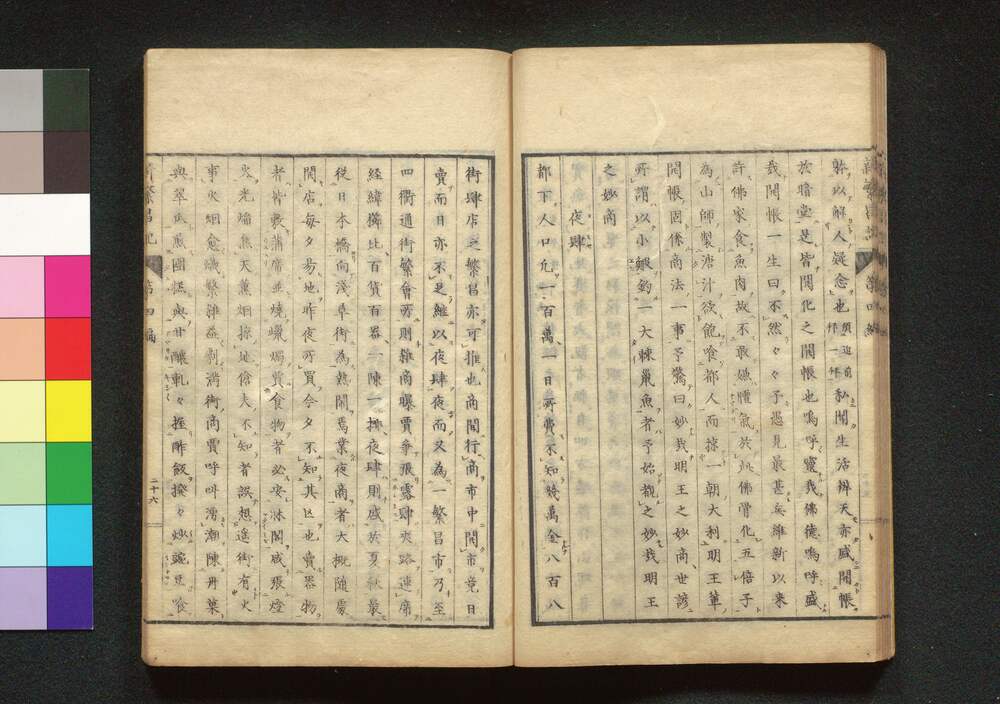 辭以解人疑念也私聞生活辨天亦盛開帳
於暗堂是皆開化之開帳也嗚呼靈哉佛德嗚呼盛
哉開帳一生曰不然々々予愚見最甚矣維新以來
許佛家食魚肉故不敢嫌腥氣於此佛僧化五倍子
為山師製溏汁欲飽喰都人而掠一朝大利明王葷
開帳固係商法一事予驚曰妙哉明王之妙商世諺
所謂以小蝦釣一大棘鬣魚者予始覩之妙哉明王
之妙商
夜肆
都下人口凢一百萬一日所費不知幾萬金八百八
街肆店之繁昌亦可推也商間行商市中開市竟日
賣而日亦不足繼以夜肆夜而又為一繁昌市乃至
四衢通街繁會所則雜商曝賈爭張露肆夾路連席
經緯櫛比百貨百器一陳一揷夜肆則盛於夏秋最
從日本橋向淺草街為熱閙焉業夜商者大概隨處
開店每夕易地昨夜所買今夕不知其亡也賣器物
者皆敷蒲席並燒蠟燭賣食物者必安牀閣盛張燈
火光熖焦天薰烟掠地傖夫不知者誤想遙街有火
事火烟愈熾繁雜益劇滿街商買呼叫湧潮陳丹菓
與翠瓜風團
新繁昌記
第四編
二十六